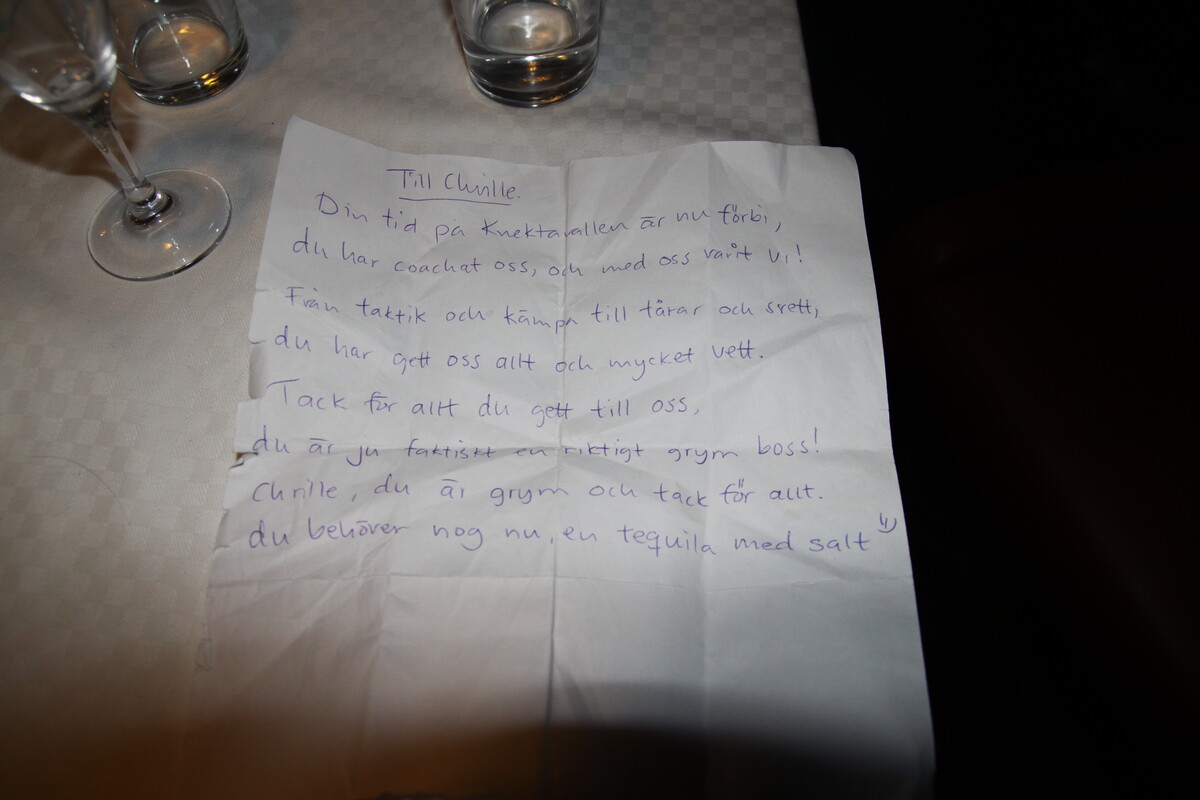 Till Chrille.
Din tid på Knektavallen är nu förbi,
du har coachat oss, och med oss varit vi!
Från taktik och kämpa till tårar och svett,
du har gett oss allt och mycket vett.
Tack för allt du gett till oss,
du är ju faktiskt en riktigt grym boss!
Chrille, du är grym och tack för allt.
du behöver nog nu, en tequila med salt =)